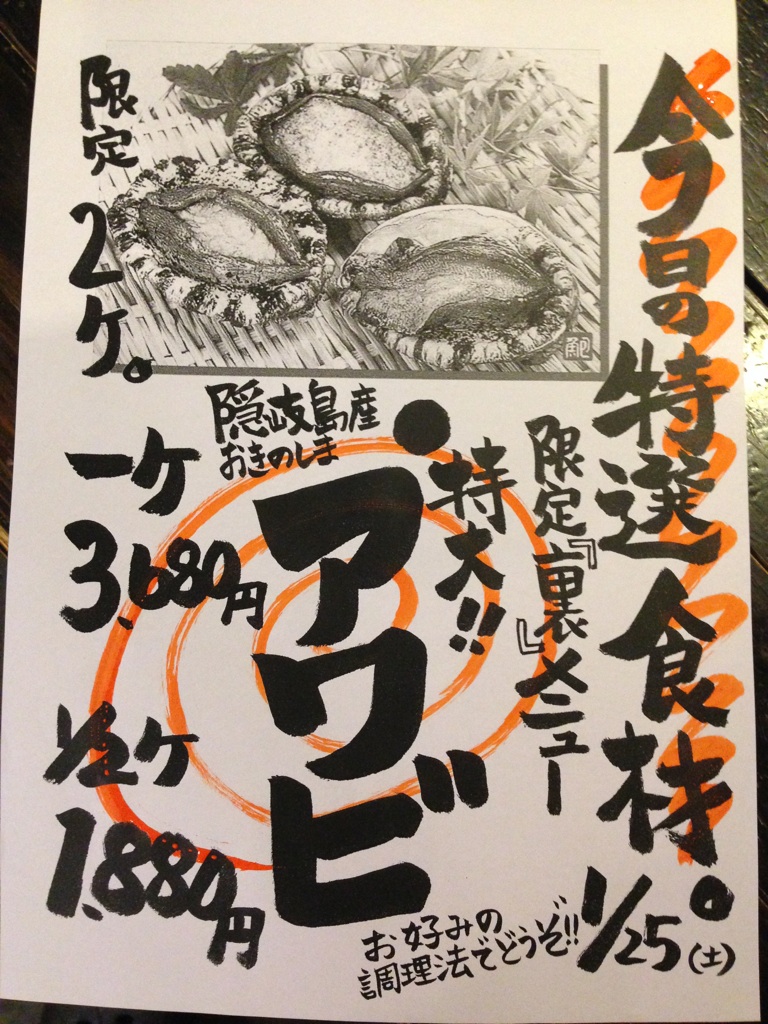 今日の特選食材。
1/25(土)
限定『裏』メニュー
特大!!
アワビ
隠岐島産
おきのしま
限定2ケ。
一ケ
3,680円
1/2ケ
1,880円
お好みの
調理法でどうぞ!!